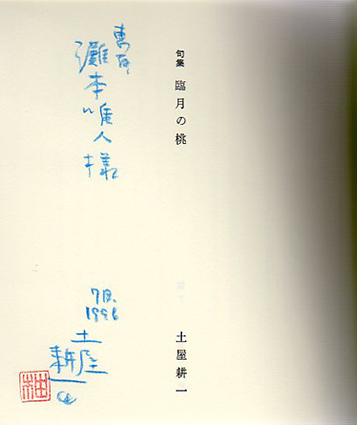 句集 臨月の桃
土屋耕一
恵存
灘本唯人様
7月.
1996
土屋
耕一